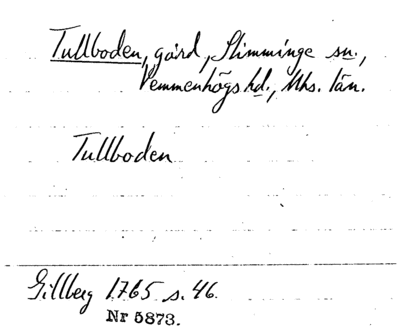 Tullboden, gård, Slimminge sn.,
Vemmenhögs hd., Mhs. län.
Tullboden
Gillberg 1765 s. 46.
Nr 5873.